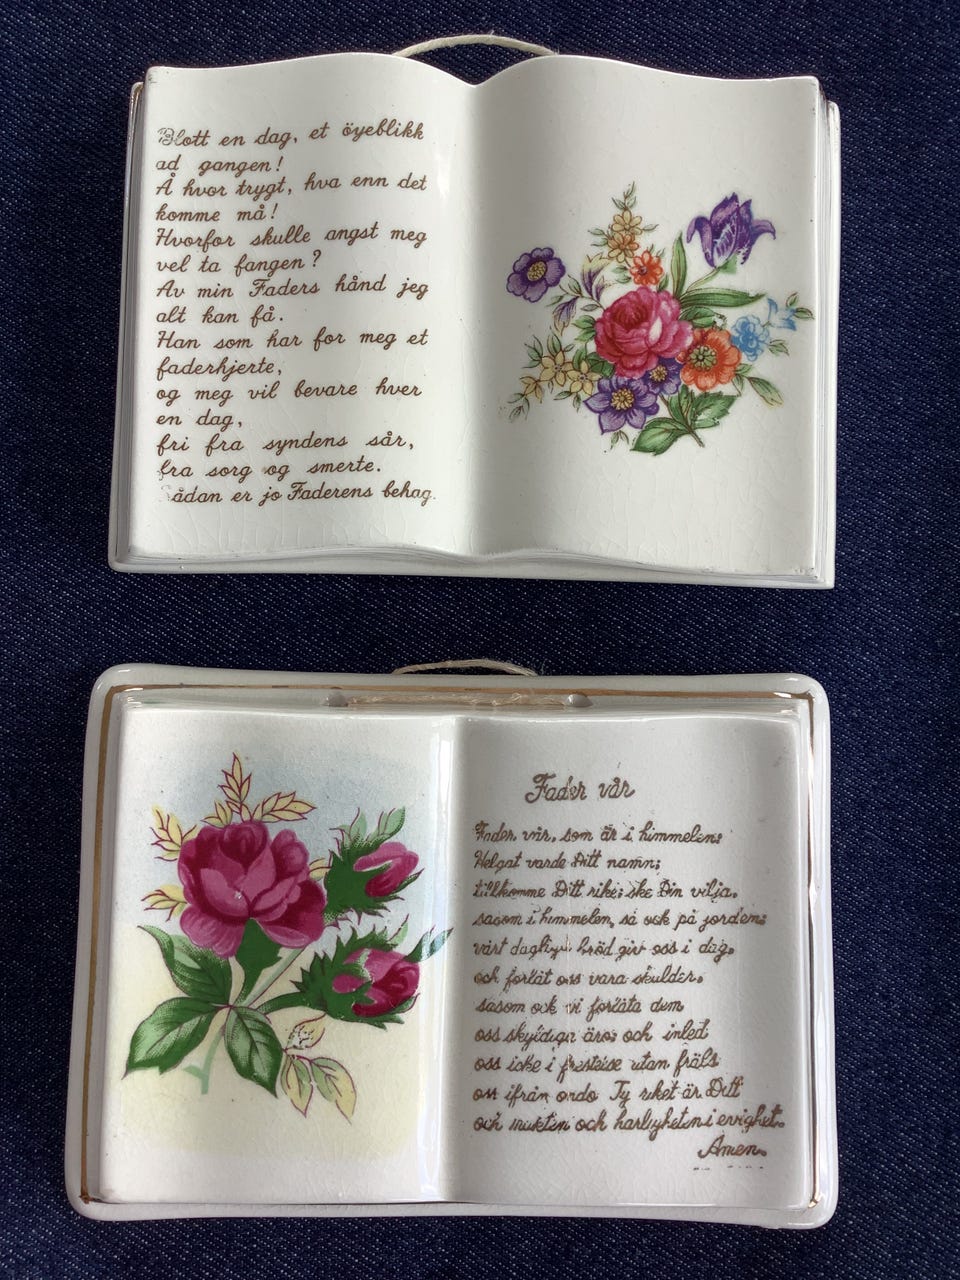 Blott en dag, et öyeblikk
ad gangen!
Å hvor trygt, hva enn det
komme må!
Hvorfor skulle angst meg
vel ta fangen?
Av min Faders hånd jeg
alt kan få.
Han som har for meg et
faderhjerte,
og meg vil bevare hver
en dag,
fri fra syndens sår,
fra sorg og smerte.
Sådan er jo Faderens behag.
Fader vår
Fader vår, som är i himmelen;
Helgat varde Ditt namn;
tillkomme Ditt rike; ske Din vilja,
såsom i himmelen, så ock på jorden;
vårt dagliga bröd giv oss i dag,
och förlåt oss våra skulder,
såsom ock vi förlåta dem
oss skyldiga äro; och inled
oss icke i frestelse utan fräls
oss ifrån ondo Ty riket är Ditt
och makten och härligheten i evighet.
Amen.